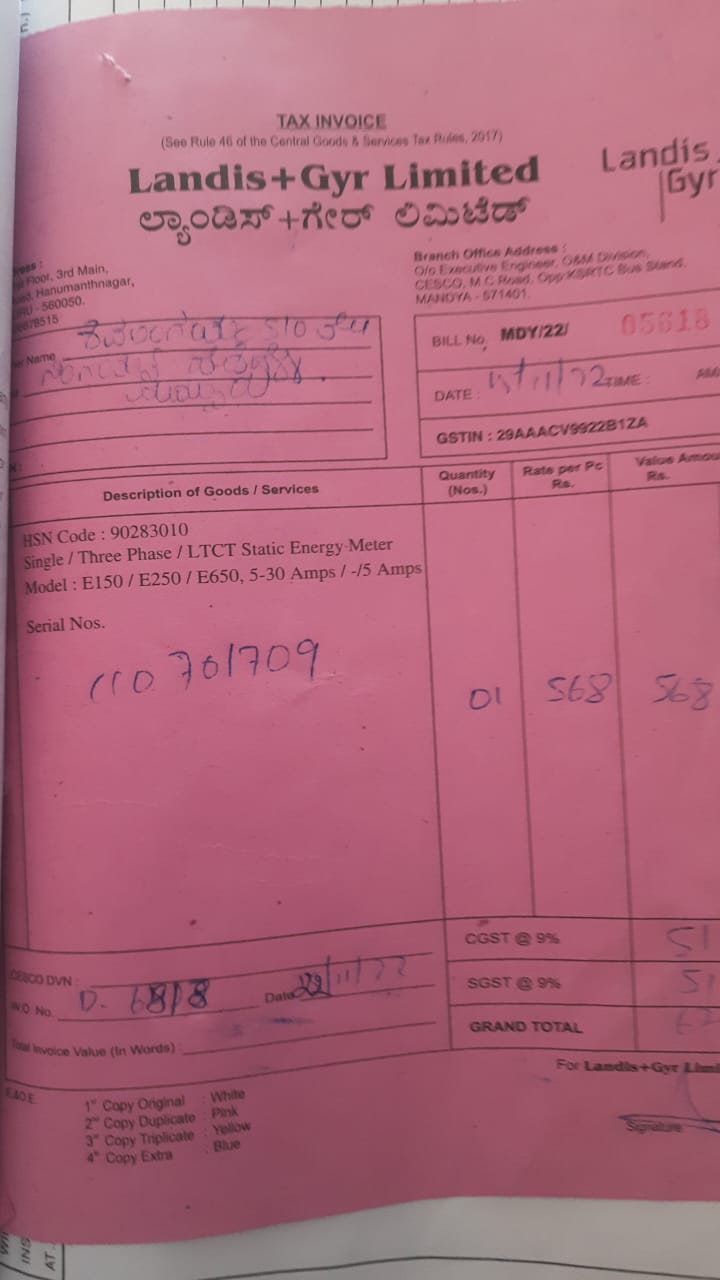 TAX INVOICE
(See Rule 46 of the Central Goods & Services Tax Rules, 2017)
Landis+Gyr Limited
ಲ್ಯಾಂಡಿಸ್+ಗೇರ್ ಲಿಮಿಟೆಡ್
Landis
Gyr
Floor, 3rd Main,
Hanumanthnagar,
- 560050.
Branch Office Address :
O/o Executive Engineer, O&M Division,
CESCO, M.C Road, Opp KSRTC Bus Stand,
MANDYA - 571401.
Name
BILL No. MDY/22/ 05618
DATE : TIME :
GSTIN : 29AAACV9922B1ZA
Description of Goods / Services
Quantity (Nos.)
Rate per Pc Rs.
Value Rs.
HSN Code : 90283010
Single / Three Phase / LTCT Static Energy Meter
Model : E150 / E250 / E650, 5-30 Amps / -/5 Amps
Serial Nos.
110701709
01 568 568
CGST @ 9% 51
SGST @ 9% 51
GRAND TOTAL
CESCO DVN :
W.O. No. Date 22/11/22
Total Invoice Value (In Words) :
For Landis+Gyr
E.&O.E.
1st Copy Original : White
2nd Copy Duplicate : Pink
3rd Copy Triplicate : Yellow
4th Copy Extra : Blue
Signature